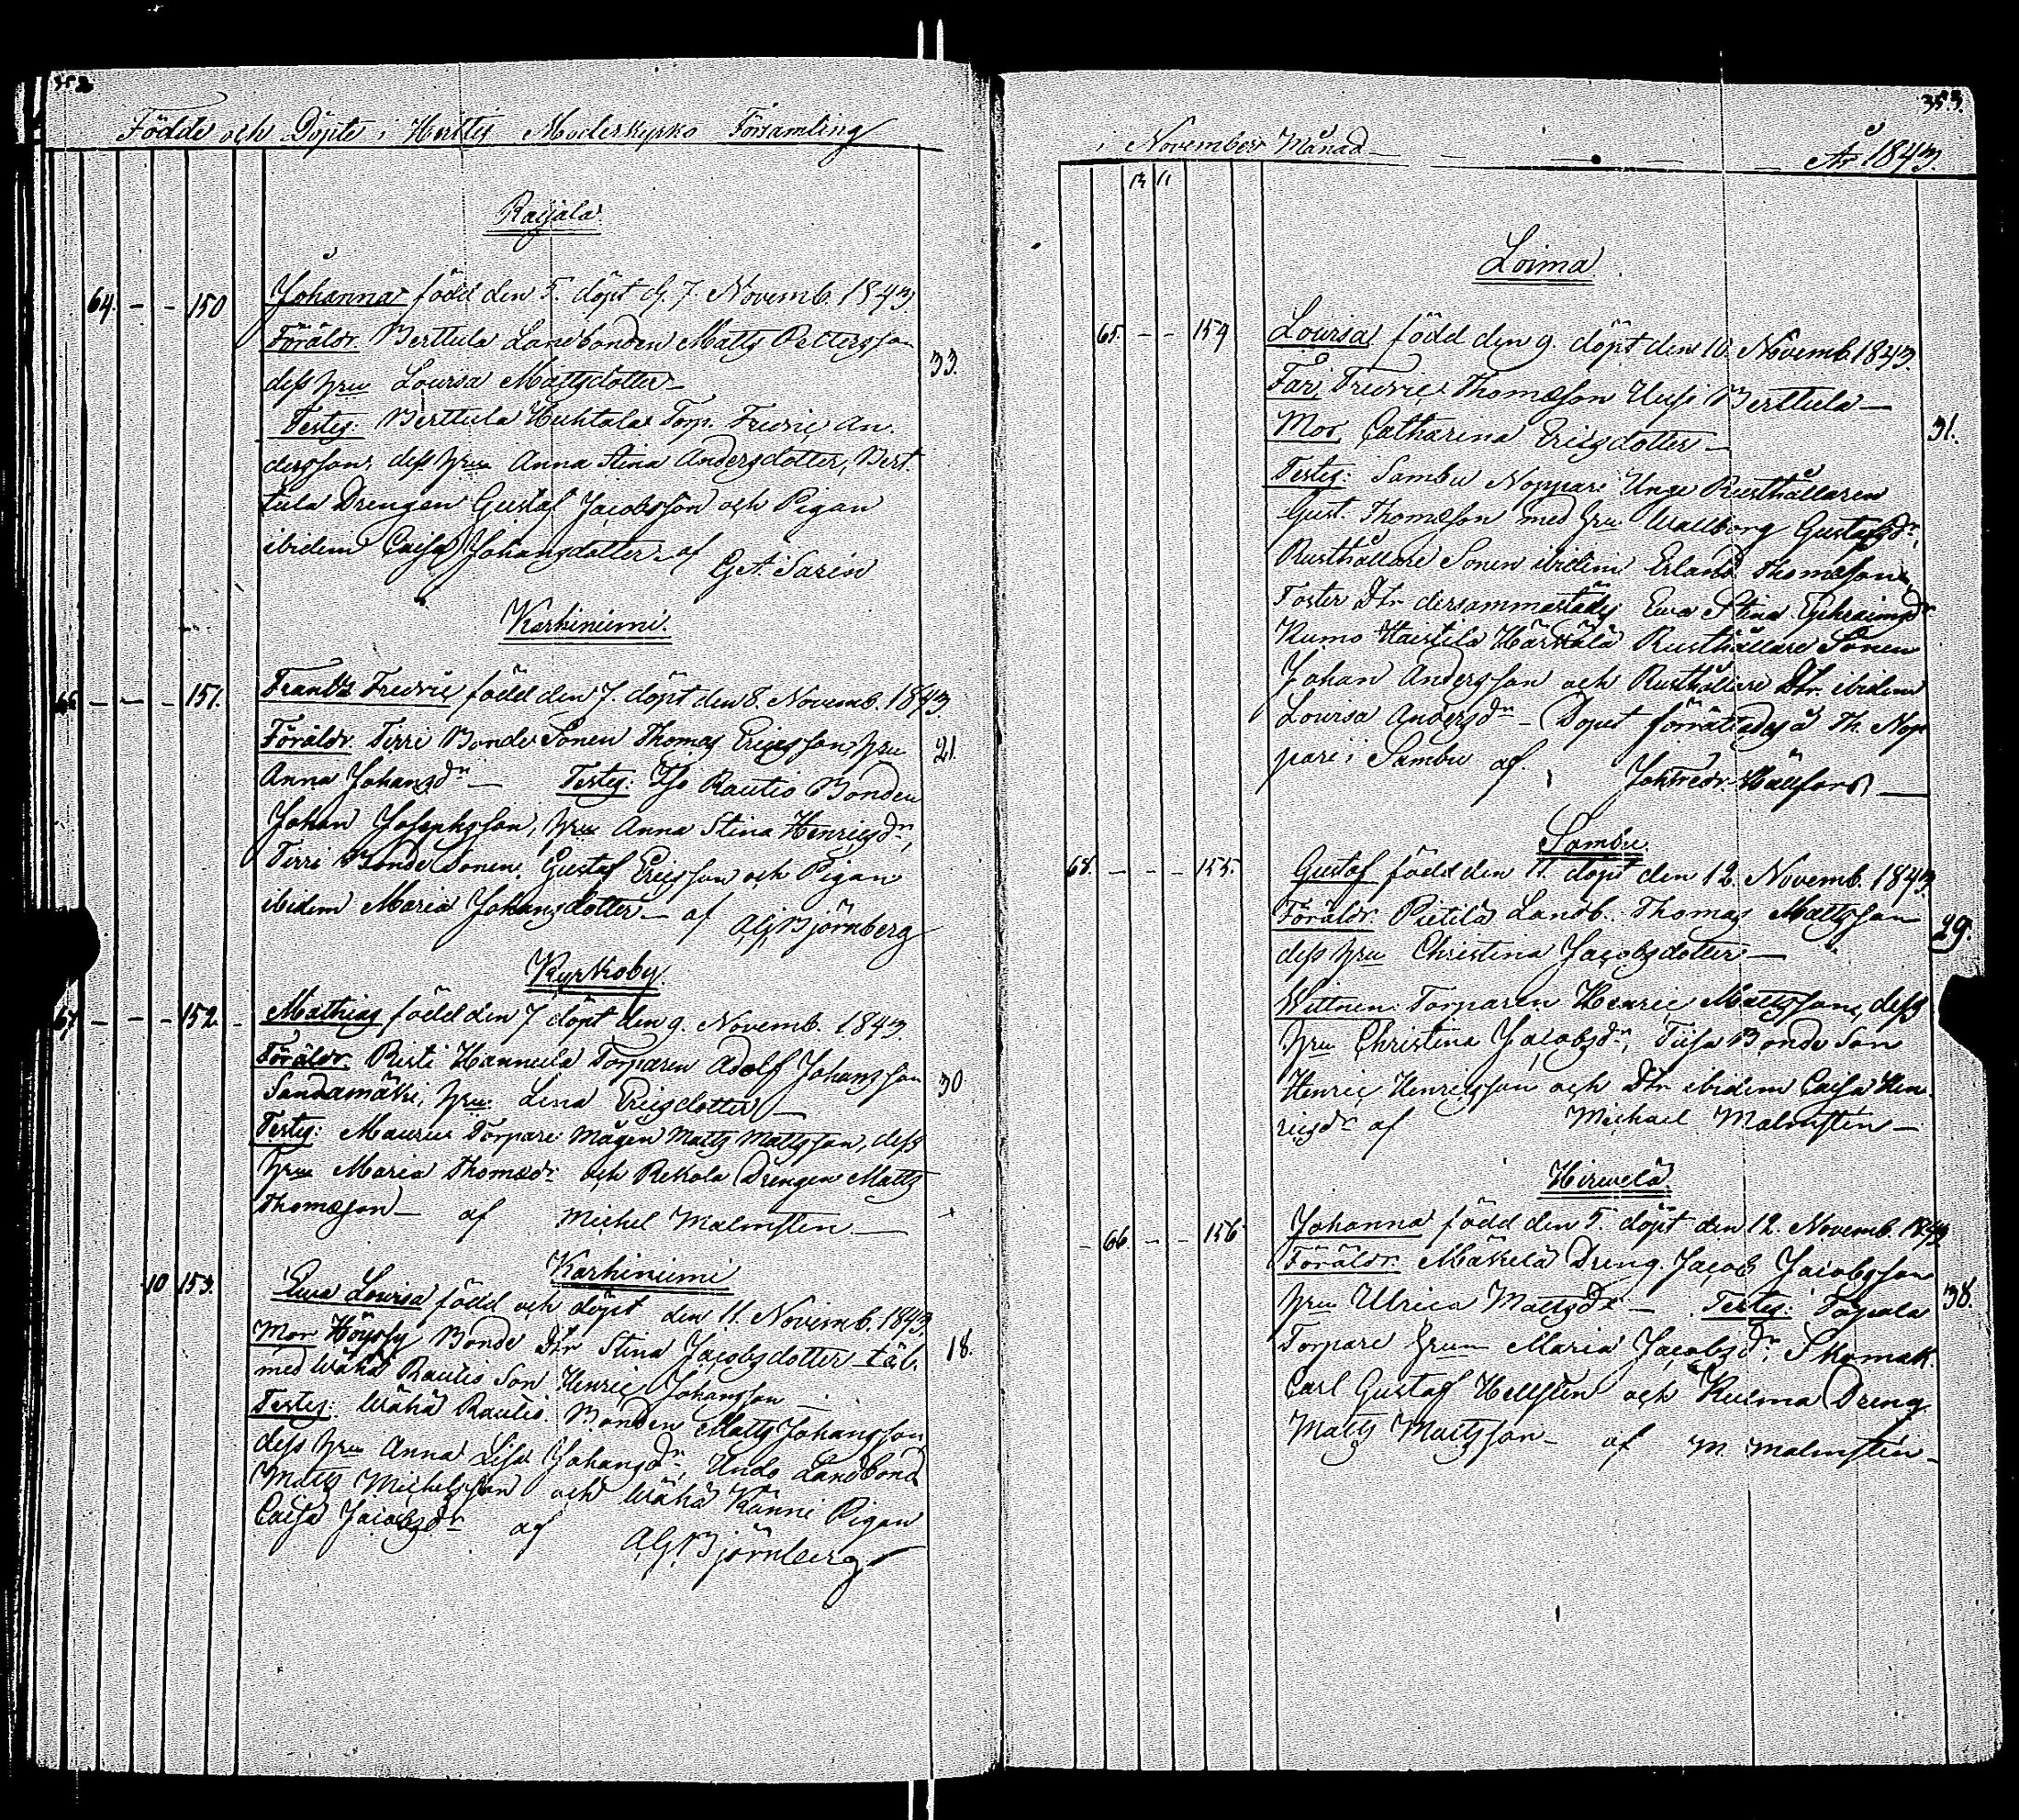 352
Födde och Döpte i Huittis Moderkyrko Församling
Raijala
64. - - 150 Johanna född den 5. döpt d. 7. Novemb. 1843.
Föräldr. Berttula Landbonden Matts Pettersson
dess hru Lovisa Mattsdotter 33.
Testes: Berttula Huhtala Torp. Fredric An-
dersson, dess hru Anna Stina Andersdotter, Bert-
tula Drengen Gustaf Jacobsson och Pigan
ibidem Caisa Johansdotter - af G.A. Sarin
Karhiniemi.
151. Frantz Fredric född den 7. döpt den 8. Novemb. 1843.
Föräldr. Tirri Bonde Sonen Thomas Ericsson, hru 21.
Anna Johansdr - Testes: Iso Rautio Bonden
Johan Josephsson, hru Anna Stina Henricsdr,
Tirri Bonde Sonen Gustaf Ericsson och Pigan
ibidem Maria Johansdotter - af A.G. Björnberg
Kyrkoby.
67 - - - 152 Mathias född den 7 döpt den 9. Novemb. 1843.
Föräldr. Risti Hannula Torparen Adolf Johansson
Sandamäki, hru Lena Ericsdotter - 30
Testes: Mauriu Torpare Mågen Matts Mattsson, dess
hru Maria Thomasdr och Rekola Drengen Matts
Thomasson - af Michel Malmsten -
Karhiniemi
10 153. Ewa Lovisa född och döpt den 11. Novemb. 1843.
Mor Höyssy Bonde Dtr Stina Jacobsdotter 18.
med Wähä Rautio Son Henric Johansson -
Testes: Wähä Rautio Bonden Matts Johansson
dess hru Anna Lisa Johansdr, Undo Landbond
Matts Michelsson och Wähä Känni Pigan
Caisa Jacobsdr af A.G. Björnberg
353
i November Månad År 1843.
Loima
65. - - 154 Lovisa född den 9. döpt den 10. Novemb. 1843.
Far, Fredric Thomasson Uusi Berttula -
Mor Catharina Ericsdotter - 31.
Testes: Sambu Noppari Unge Rusthållaren
Gust. Thomasson med hru Wallborg Gustafsdr,
Rusthållare Sonen ibidem Erland Thomasson,
Foster Dtr dersammastädes Ewa Stina Ephraimsdr
Kumo Haistila Härkälä Rusthållare Sonen
Johan Andersson och Rusthållare Dtr. ibidem
Lovisa Andersdr - Dopet förrättades å Th. Nop-
pari i Sambu af Joh Fredr. Hällfors
Sambu.
68. - - - 155. Gustaf född den 11. döpt den 12. Novemb. 1843.
Föräldr. Pietilä Landb. Thomas Mattsson
dess hru Christina Jacobsdotter - 29.
Wittnen: Torparen Henric Mattsson, dess
hru Christina Jacobsdr, Bonde Son
Henric Henricsson och Dtr ibidem Caisa Hen-
ricsdr af Michael Malmsten -
Hirwelä
- 66. - - 156 Johanna född den 5. döpt den 12. Novemb. 1843
Föräldr. Mäkelä Dreng. Jacob Jacobsson
hru Ulrica Mattsdr - Testes: 38.
Torpare hrun Maria Jacobsdr, Skomak.
Carl Gustaf Hellsten och Kulma Dreng
Matts Mattsson - af M. Malmsten -